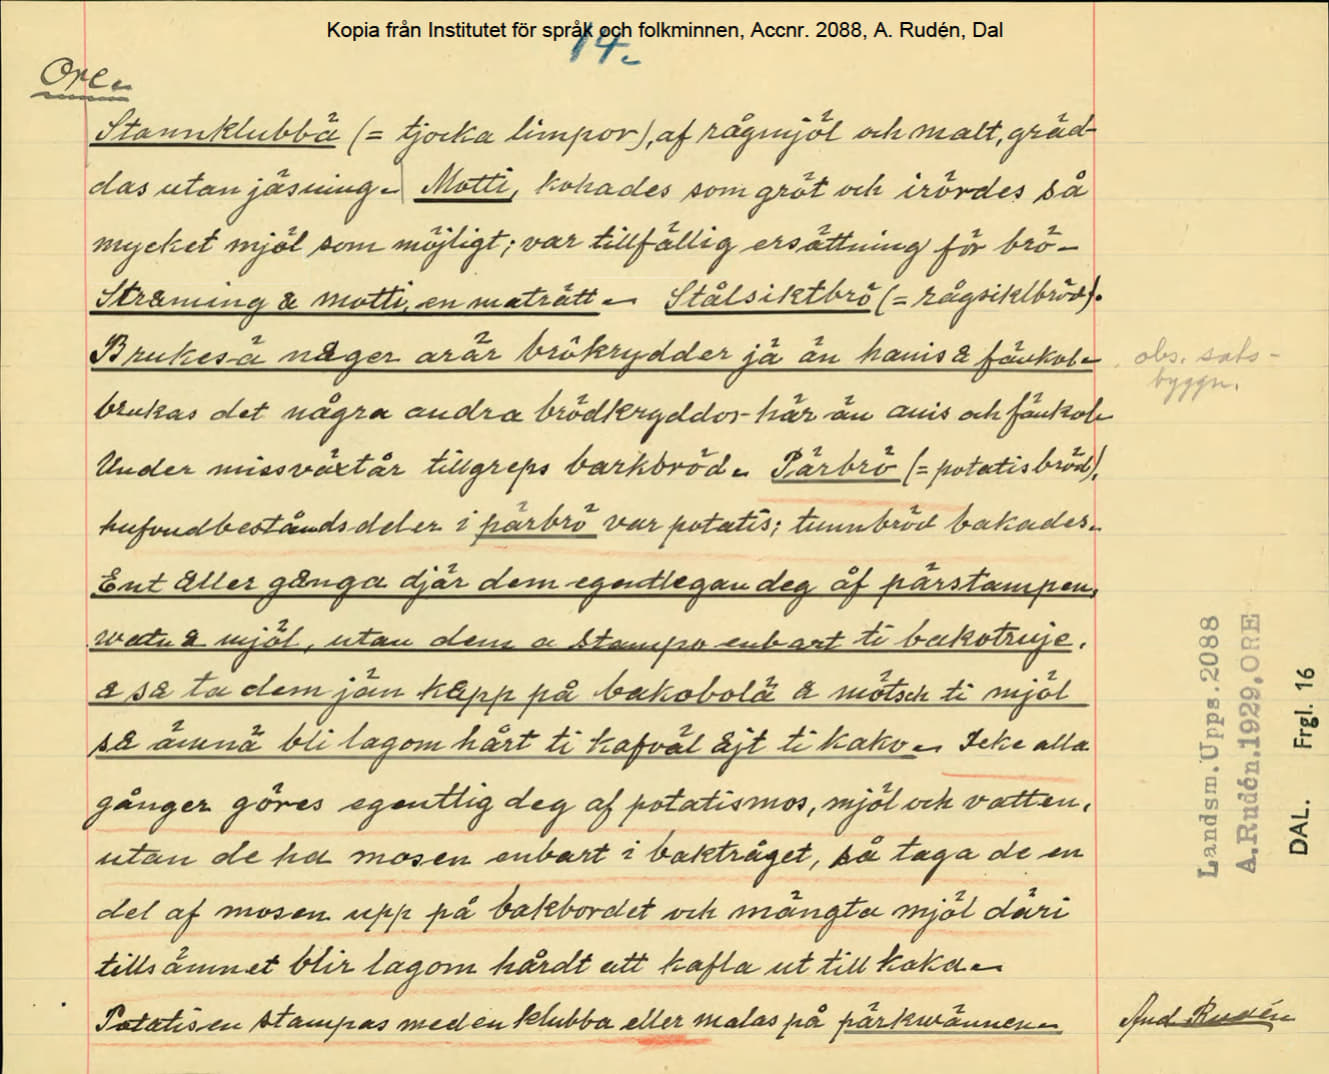 Kopia från Institutet för språk och folkminnen, Accnr. 2088, A. Rudén, Dal
14.
Ore.
Stannklubbä (= tjocka limpor), af rågmjöl och malt, gräd-
das utan jäsning. Motti, kokades som gröt och irördes så
mycket mjöl som möjligt; var tillfällig ersättning för brö-
Straming & motti, en maträtt. Stålsiktbrö (= rågsiktbröd).
Brukes-ä någer arär brökrydder jä än hanis & fänkol.
brukas det några andra brödkryddor här än anis och fänkol.
Under missväxtår tillgreps barkbröd. Pärbrö (= potatisbröd),
hufvudbeståndsdelen i pärbrö var potatis; tunnbröd bakades.
Ent aller gånga djär dem egentlegan deg åf pärstampen,
watn & mjöl, utan dem a stampo enbart ti bakotruje,
& sa ta dem jän kapp på bakobolä & mötsch ti mjöl
sa ämnä bli lagom hårt ti kafväl äjt ti kako. Icke alla
gånger göres egentlig deg af potatismos, mjöl och vatten,
utan de ha mosen enbart i baktråget, så taga de en
del af mosen upp på bakbordet och mängta mjöl däri
tills ämnet blir lagom hårdt att kafla ut till kaka.
Potatisen stampas med en klubba eller malas på pärkwännen.
obs. sats-
byggn.
Landsm. Upps. 2088
A. Rudén. 1929. ORE
DAL. Frgl. 16
And. Rudén